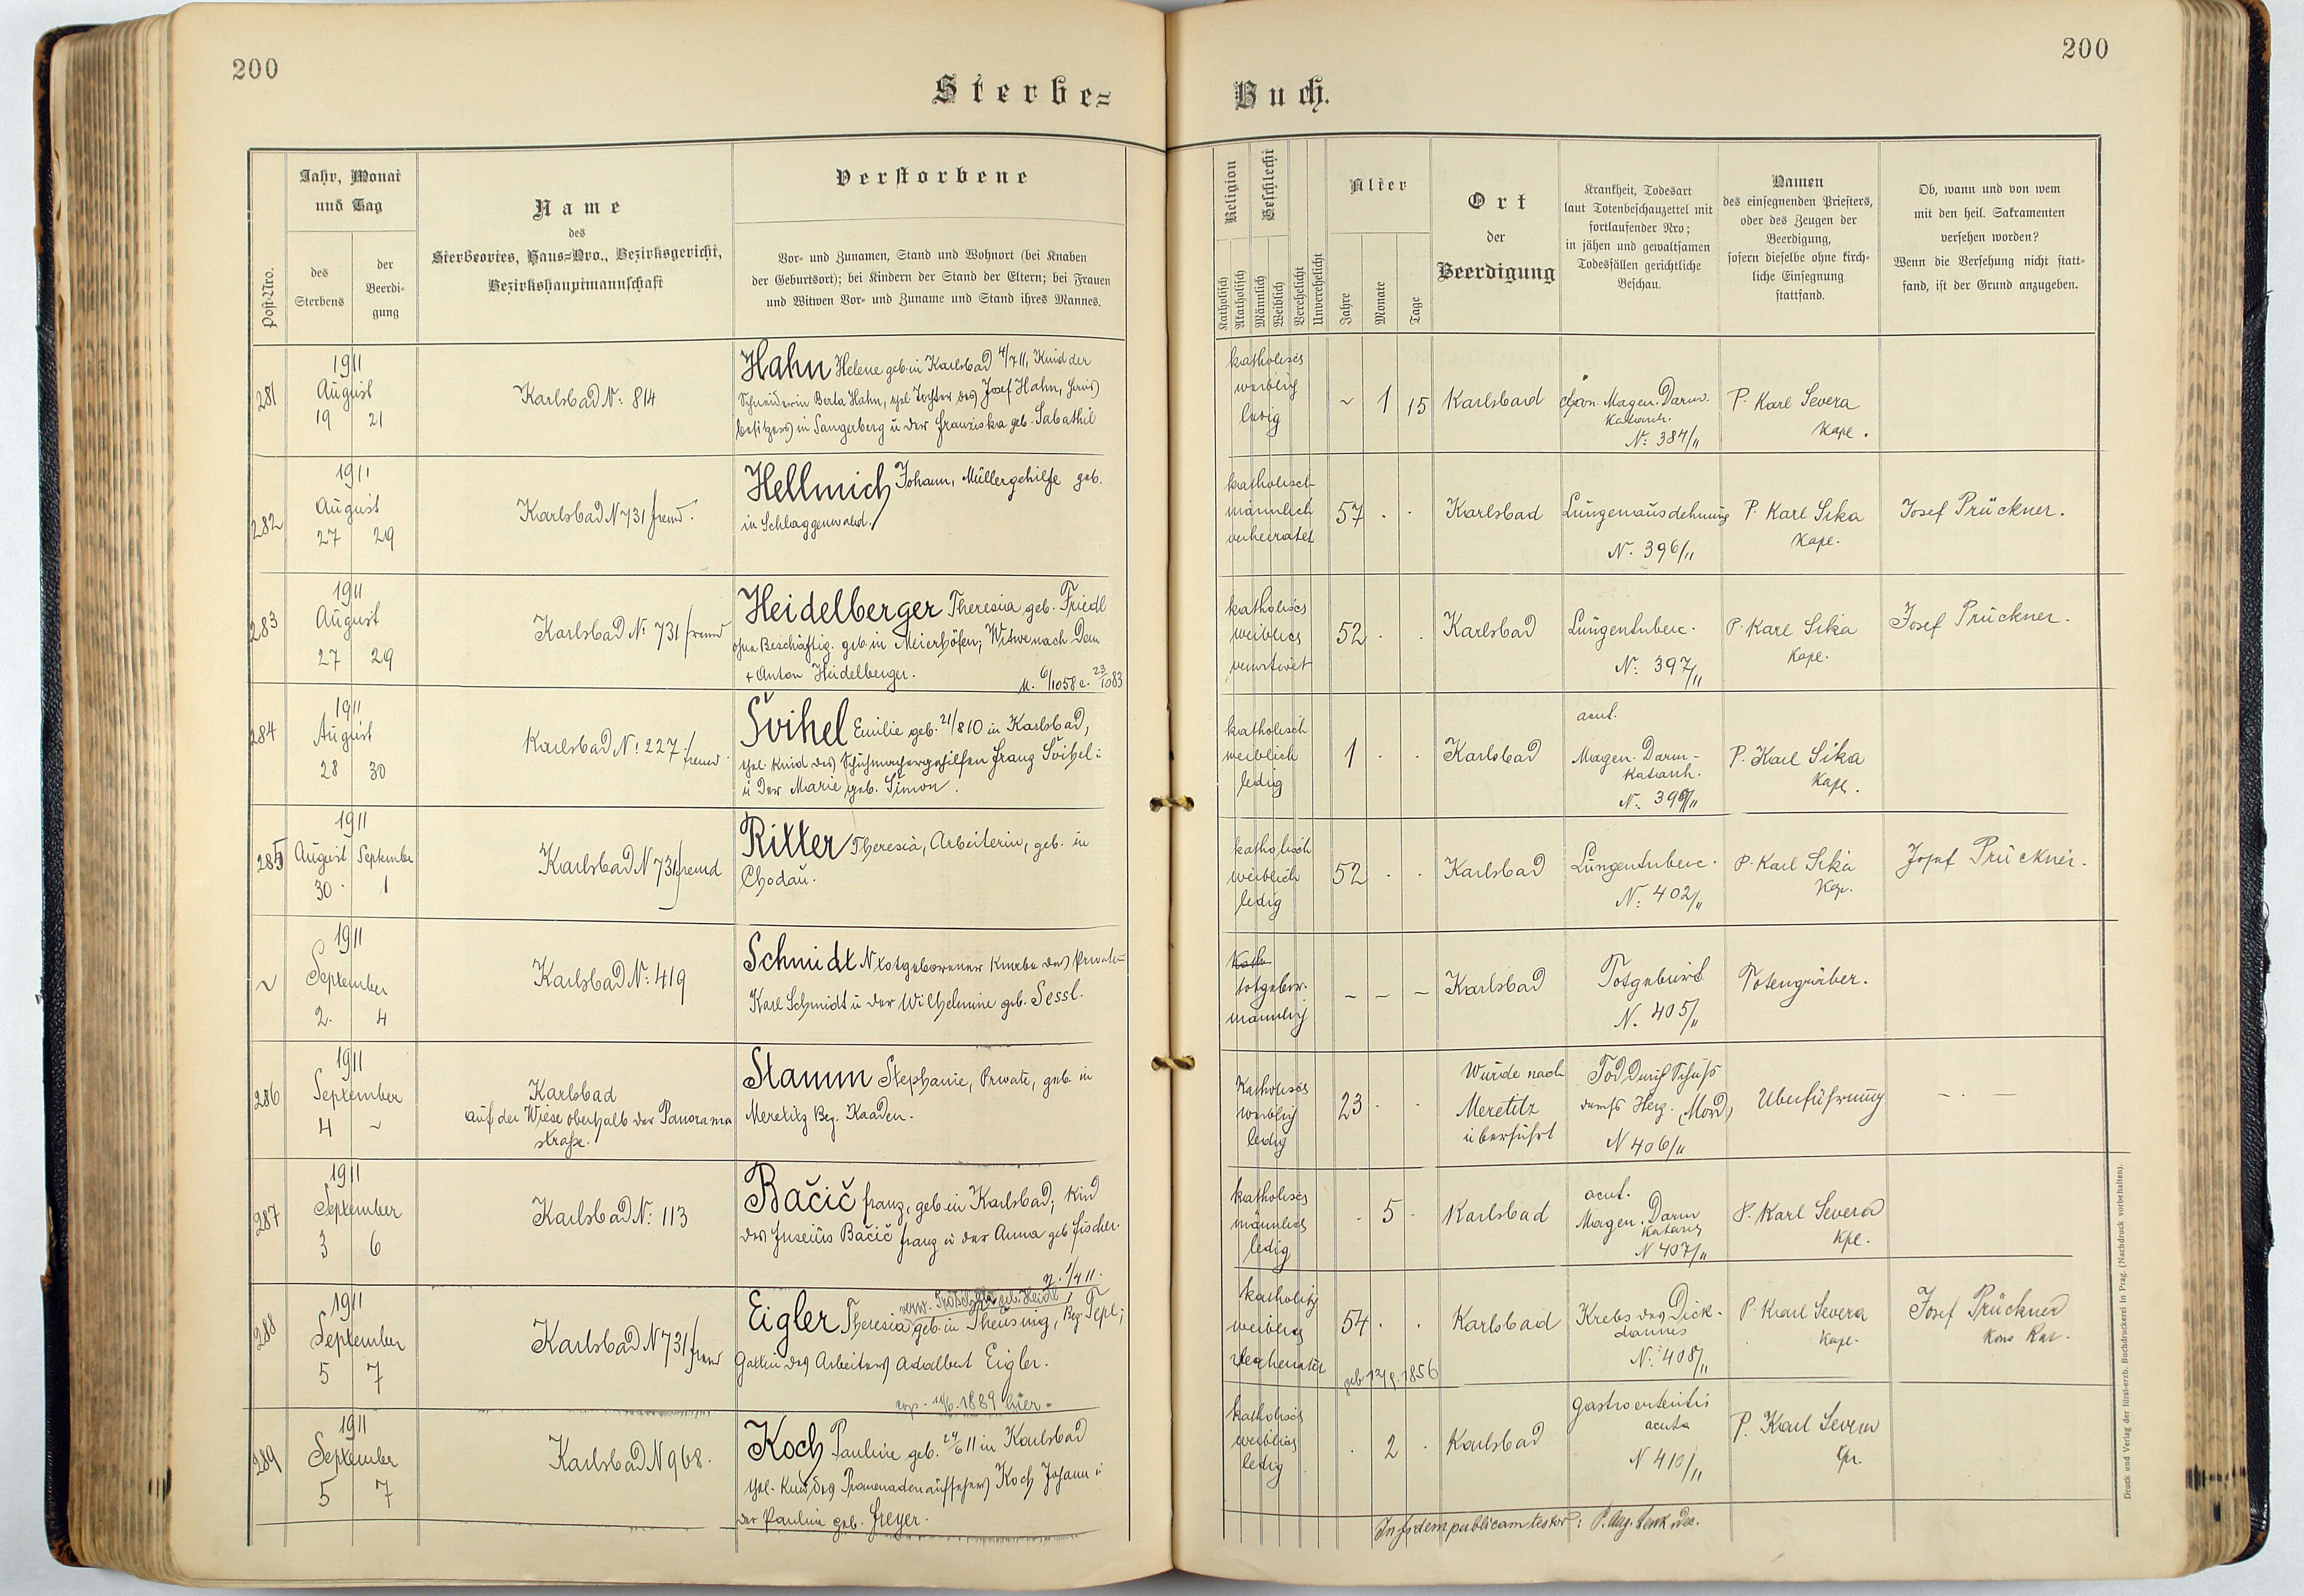 200
200
Sterbe=
Buch.
Post-Nro.
Jahr, Monat
und Tag
des
Sterbens
der
Beerdi-
gung
Name
des
Sterbeortes, Haus=Nro., Bezirksgericht,
Bezirkshauptmannschaft
Verstorbene
Vor- und Zunamen, Stand und Wohnort (bei Knaben
der Geburtsort); bei Kindern der Stand der Eltern; bei Frauen
und Witwen Vor- und Zuname und Stand ihres Mannes.
Religion
Katholisch
Akatholisch
Geschlecht
Männlich
Weiblich
Verehelicht
Unverehelicht
Alter
Jahre
Monate
Tage
Ort
der
Beerdigung
Krankheit, Todesart
laut Totenbeschauzettel mit
fortlaufender Nro;
in jähen und gewaltsamen
Todesfällen gerichtliche
Beschau.
Namen
des einsegnenden Priesters,
oder des Zeugen der
Beerdigung,
sofern dieselbe ohne kirch-
liche Einsegnung
stattfand.
Ob, wann und von wem
mit den heil. Sakramenten
versehen worden?
Wenn die Versehung nicht statt-
fand, ist der Grund anzugeben.
281
1911
August
19 21
Karlsbad N: 814
Hahn Helene geb. in Karlsbad 4/7 11, Kind der
Schneiderin Berta Hahn, ehel. Tochter des Josef Hahn,
besitzers in Sangerberg u der Franziska geb. Sabathil
katholisch
weiblich
ledig
~ 1 15
Karlsbad
chron. Magen. Darm.
Katarrh.
N: 384/11
P. Karl Severa
Kapl.
282
1911
August
27 29
Karlsbad N 731 fremd.
Hellmich Johann, Müllergehilfe geb.
in Schlaggenwald.
katholisch
männlich
verheiratet
57 . .
Karlsbad
Lungenausdehnung
N. 396/11
P. Karl Sika
Kapl.
Josef Prückner.
283
1911
August
27 29
Karlsbad N: 731 fremd
Heidelberger Theresia geb. Friedl
ohne Beschäftig. geb. in Meierhöfen; Witwe nach dem
+ Anton Heidelberger.
katholisch
weiblich
verwitwet
52 . .
Karlsbad
Lungentuberc.
N: 397/11
P. Karl Sika
Kapl.
Josef Prückner.
284
1911
August
28 30
Karlsbad N: 227. fremd
Švihel Emilie geb. 21/8 10 in Karlsbad,
ehel. Kind des Schuhmachergehilfen Franz Švihel
u der Marie geb. Simon.
katholisch
weiblich
ledig
1 . .
Karlsbad
acut.
Magen. Darm-
Katarrh.
P. Karl Sika
Kapl.
285
1911
August September
30. 1
Karlsbad N 731 fremd
Ritter Theresia, Arbeiterin, geb. in
Chodau.
katholisch
weiblich
ledig
52 . .
Karlsbad
Lungentuberc.
N: 402/11
P. Karl Sika
Kap.
Josef Prückner.
~
1911
September
2. 4
Karlsbad N: 419
Schmidt N totgeborener Knabe des Privat=
Karl Schmidt u der Wilhelmine geb. Sessl.
Kath
totgebor.
männlich
– – –
Karlsbad
Totgeburt
N. 405/11
Totengräber.
286
1911
September
4 ~
Karlsbad
auf der Wiese oberhalb der Panorama
straße.
Stamm Stephanie, Private, geb. in
Meretitz Bez. Kaaden.
Katholisch
weiblich
ledig
23 . .
Wurde nach
Meretitz
überführt
Tod durch Schuss
durchs Herz. (Mord)
N 406/11
Überführung
– . –
287
1911
September
3 6
Karlsbad N: 113
Bačič Franz, geb in Karlsbad; Kind
des Bačič Franz u der Anna geb Fischer.
1/4 11.
katholisch
männlich
ledig
. 5 .
Karlsbad
acut.
Magen. Darm
Katarrh
N 407/11
P. Karl Severa
Kpl.
288
1911
September
5 7
Karlsbad N 731 fremd
verw. geb. Heidl
Eigler Theresia geb. in Theusing, Bez. Tepl;
Gattin des Arbeiters Adalbert Eigler.
1889 hier.
katholisch
weiblich
verheiratet
54 . .
geb. 1856
Karlsbad
Krebs des Dick-
darmes
N: 408/11
P. Karl Severa
Kapl.
Josef Prückner
289
1911
September
5 7
Karlsbad N 968.
Koch Pauline geb. 24/6 11 in Karlsbad
ehel. Kind des Promenadenaufsehers Koch Johann u
der Pauline geb. Freyer.
katholisch
weiblich
ledig
. 2 .
Karlsbad
Gastroenteritis
acuta
N 410/11
P. Karl Severa
Kpl.
In fidem publicam testor:
Druck und Verlag der fürst-erzb. Buchdruckerei in Prag. (Nachdruck vorbehalten).